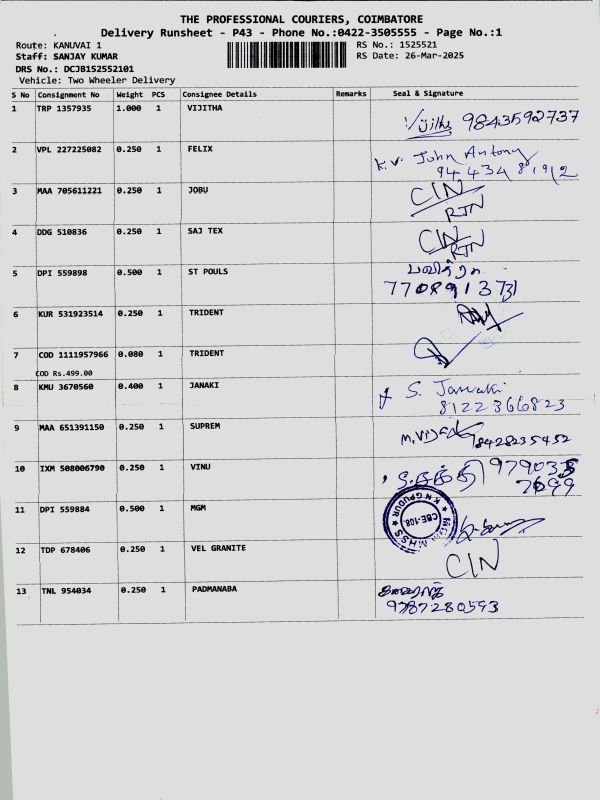 THE PROFESSIONAL COURIERS, COIMBATORE
Delivery Runsheet - P43 - Phone No.:0422-3505555 - Page No.:1
Route: KANUVAI 1 RS No.: 1525521
Staff: SANJAY KUMAR RS Date: 26-Mar-2025
DRS No.: DCJB152552101
Vehicle: Two Wheeler Delivery
S No Consignment No Weight PCS Consignee Details Remarks Seal & Signature
1 TRP 1357935 1.000 1 VIJITHA Vijitha 9843592737
2 VPL 227225082 0.250 1 FELIX K.V. John Antony
3 MAA 705611221 0.250 1 JOBU C/N RTN
4 DDG 510836 0.250 1 SAJ TEX C/N RTN
5 DPI 559898 0.500 1 ST POULS பவித்ரா
6 KUR 531923514 0.250 1 TRIDENT
7 COD 1111957966 0.080 1 TRIDENT
COD Rs.499.00
8 KMU 3670560 0.400 1 JANAKI S. Janaki
8122366823
9 MAA 651391150 0.250 1 SUPREM 98428235452
10 IXM 508006790 0.250 1 VINU 979033
7699
11 DPI 559884 0.500 1 MGM MGM MHSS KNGPUDUR CBE-108
12 TDP 678406 0.250 1 VEL GRANITE C/N
13 TNL 954034 0.250 1 PADMANABA
9787280593